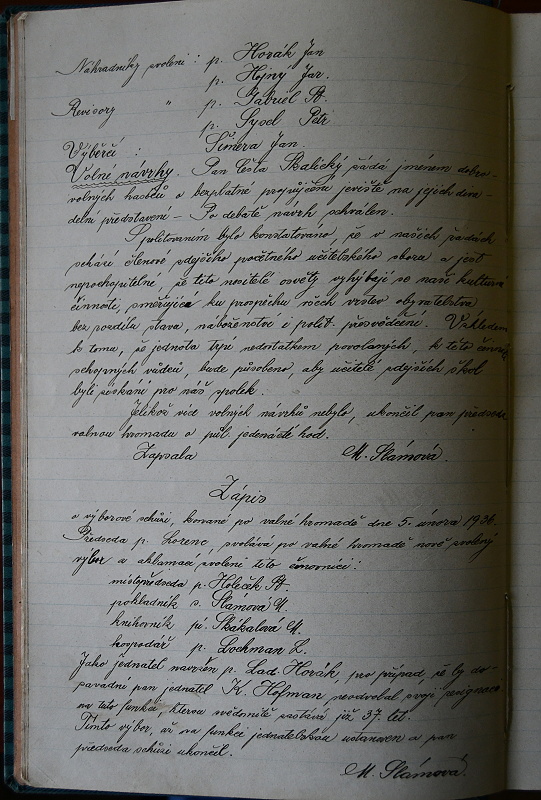 Náhradníky zvoleni : p. Horák Jan
p. Hojný Jar.
Revisory " p. Gabriel B.
p. Sysel Petr
Výběrčí : Šinera Jan.
Volné návrhy. Pan Česta Skalický žádá jménem dobro-
volných hasičů o bezplatné propůjčení jeviště na jejich diva-
delní představení – Po debatě návrh schválen.
S politováním bylo konstatováno, že v našich řadách
schází členové zdejšího početného učitelského sboru a jest
nepochopitelné, že tito nositelé osvěty vyhýbají se naší kulturní
činnosti, směřující ku prospěchu všech vrstev obyvatelstva
bez rozdílu stavu, náboženství i polit. přesvědčení. Vzhledem
k tomu, že jednota trpí nedostatkem povolaných, k této činnosti
schopných vůdců, bude působeno, aby učitelé zdejších škol
byli získáni pro náš spolek.
Jelikož více volných návrhů nebylo, ukončil pan předseda
valnou hromadu o půl jedenácté hod.
Zapsala M. Slámová.
Zápis
o výborové schůzi, konané po valné hromadě dne 5. února 1936.
Předseda p. Lorenc, svolává po valné hromadě nově zvolený
výbor a aklamací zvoleni tito činovníci :
místopředseda p. Holeček B.
pokladník s. Slámová M.
knihovník pí. Skákalová M.
hospodář p. Lochman L.
Jako jednatel navržen p. Lad. Horák, pro případ, že by do-
savadní pan jednatel K. Hofman neodvolal svoji resignaci
na tuto funkci, kterou svědomitě zastává již 37. let.
Tímto výbor, až na funkci jednatelskou ustanoven a pan
předseda schůzi ukončil.
M. Slámová.